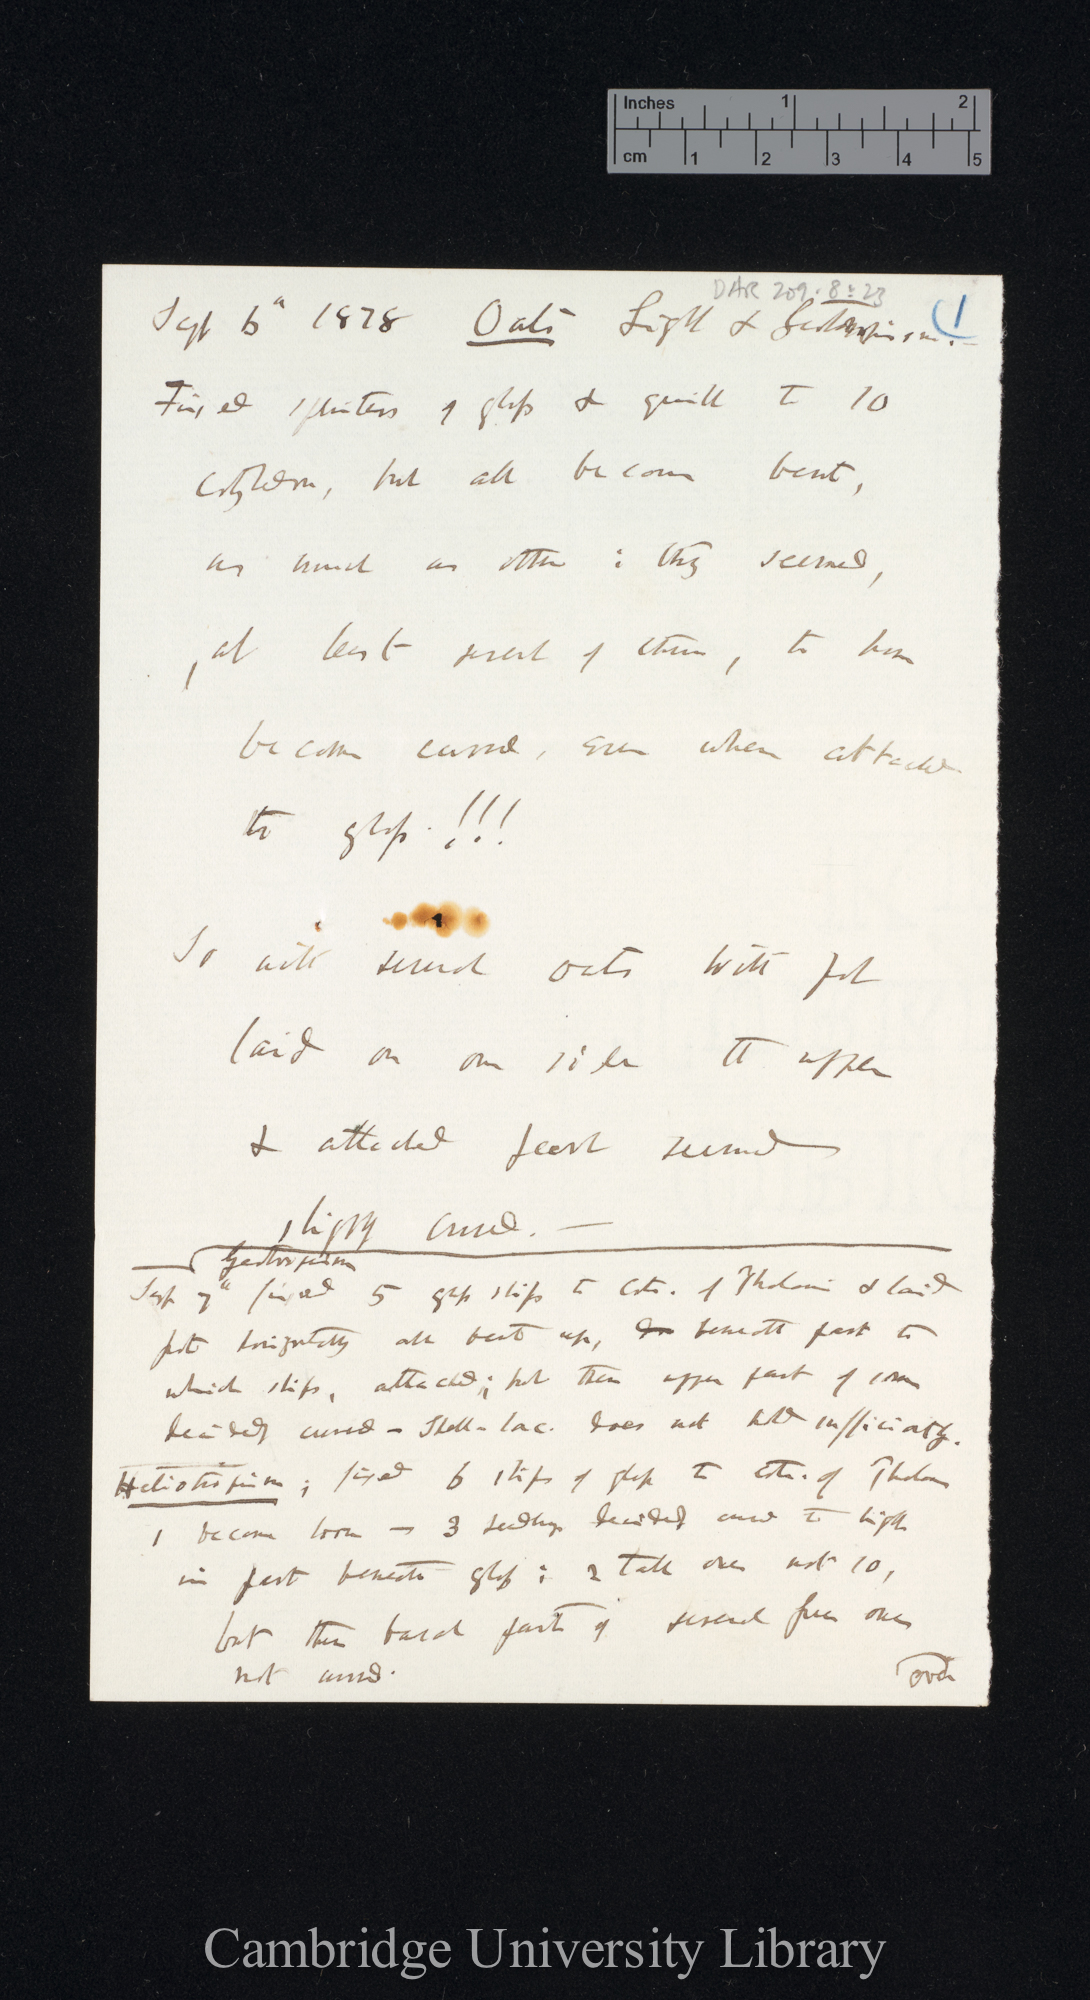 Inches 1 2
cm 1 2 3 4 5
DAR 209.8:23
1
Sept 6th 1878 Oats Light & Geotropism.—
Fixed splinters of glass & quill to 10
cotyledon, but all become bent,
as much as other : they seemed,
at least several of them, to have
become curved, even when attached
to glass !!!
So with several oats with pot
laid on one side the upper
& attached part seemed
slightly curved. —
Geotropism
Sept 7th fixed 5 glass slips to Cots. of Phalaris & laid
pot horizontally all bent up, beneath part to
which slips, attached; but then upper part of some
decidedly curved — Shell-lac. does not hold sufficiently.
Heliotropism ; fixed 6 slips of glass to cots. of Phalaris
1 become loose — 3 seedlings decidedly curved to light
in part beneath glass ; 2 tall ones not so,
but then basal parts of several free ones
not curved.
over
Cambridge University Library